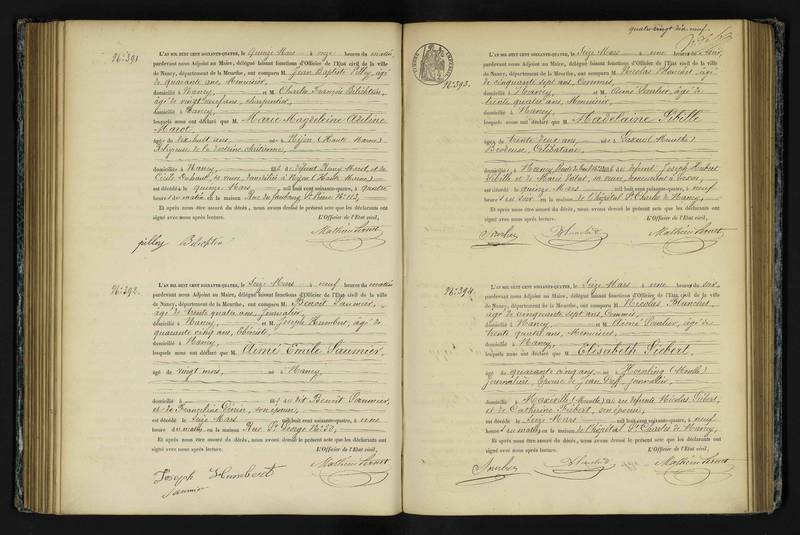 N°. 391
L'AN MIL HUIT CENT SOIXANTE-QUATRE, le quinze Mars à onze heures du matin,
pardevant nous Adjoint au Maire, délégué faisant fonctions d'Officier de l'Etat civil de la ville
de Nancy, département de la Meurthe, ont comparu M. Jean Baptiste Pilley, âgé
de quarante ans, Menuisier,
domicilié à Nancy, et M. Charles François
âgé de vingt neuf ans, charpentier,
domicilié à Nancy,
lesquels nous ont déclaré que M. Marie Magdeleine Adeline
Marot,
âgée de dix huit ans, née à (Haute Marne)
Religieuse de la doctrine chrétienne,
domiciliée à Nancy, fille de défunt Remy Marot, et de
Cécile sa veuve, domiciliée à (Haute Marne)
est décédée le quinze Mars mil huit cent soixante-quatre, à quatre
heures du matin en la maison Rue du faubourg St Pierre N°. 112,
Et après nous être assuré du décès, nous avons dressé le présent acte que les déclarants ont
signé avec nous après lecture. L'Officier de l'Etat civil,
pilley
N°. 392.
L'AN MIL HUIT CENT SOIXANTE-QUATRE, le Seize Mars à neuf heures du matin
pardevant nous Adjoint au Maire, délégué faisant fonctions d'Officier de l'Etat civil de la ville
de Nancy, département de la Meurthe, ont comparu M. Benoit Saunier,
âgé de trente quatre ans, Journalier,
domicilié à Nancy, et M. Joseph Humbert, âgé de
quarante cinq ans, Ebéniste,
domicilié à Nancy,
lesquels nous ont déclaré que M. Aimé Emile Saunier,
âgé de vingt mois, né à Nancy,
domicilié à fils du dit Benoit Saunier,
et de Françeline son épouse,
est décédé le Seize Mars mil huit cent soixante-quatre, à une
heure du matin en la maison Rue St George N°. 50,
Et après nous être assuré du décès, nous avons dressé le présent acte que les déclarants ont
signé avec nous après lecture. L'Officier de l'Etat civil,
Joseph Humbert
Saunier
quatre vingt dix neuf
N°. 393.
L'AN MIL HUIT CENT SOIXANTE-QUATRE, le Seize Mars à une heure du soir,
pardevant nous Adjoint au Maire, délégué faisant fonctions d'Officier de l'Etat civil de la ville
de Nancy, département de la Meurthe, ont comparu M. Nicolas Blanchet, âgé
de cinquante sept ans, Commis,
domicilié à Nancy, et M. Aimé âgé de
trente quatre ans, Menuisier,
domicilié à Nancy,
lesquels nous ont déclaré que M. Madelaine Sibille
âgée de trente deux ans, née à (Meurthe)
Brodeuse, Célibataire,
domiciliée à Nancy fille de défunt Joseph Hubert
Sibille, et de Marie sa veuve,
est décédée le quinze Mars mil huit cent soixante-quatre, à neuf
heures du soir en la maison de l'hôpital St Charles de Nancy,
Et après nous être assuré du décès, nous avons dressé le présent acte que les déclarants ont
signé avec nous après lecture. L'Officier de l'Etat civil,
N°. 394.
L'AN MIL HUIT CENT SOIXANTE-QUATRE, le Seize Mars à une heure du soir,
pardevant nous Adjoint au Maire, délégué faisant fonctions d'Officier de l'Etat civil de la ville
de Nancy, département de la Meurthe, ont comparu M. Nicolas Blanchet,
âgé de cinquante sept ans, Commis,
domicilié à Nancy, et M. Aimé âgé de
trente quatre ans, Menuisier,
domicilié à Nancy,
lesquels nous ont déclaré que M. Elisabeth Siebert,
âgée de quarante cinq ans, née à (Moselle)
Journalière, Epouse de Jean Journalier,
domiciliée à (Moselle) fille de défunts Nicolas Siebert,
et de Catherine son épouse,
est décédée le Seize Mars mil huit cent soixante-quatre, à neuf
heures du matin en la maison de l'hôpital St Charles de Nancy,
Et après nous être assuré du décès, nous avons dressé le présent acte que les déclarants ont
signé avec nous après lecture. L'Officier de l'Etat civil,